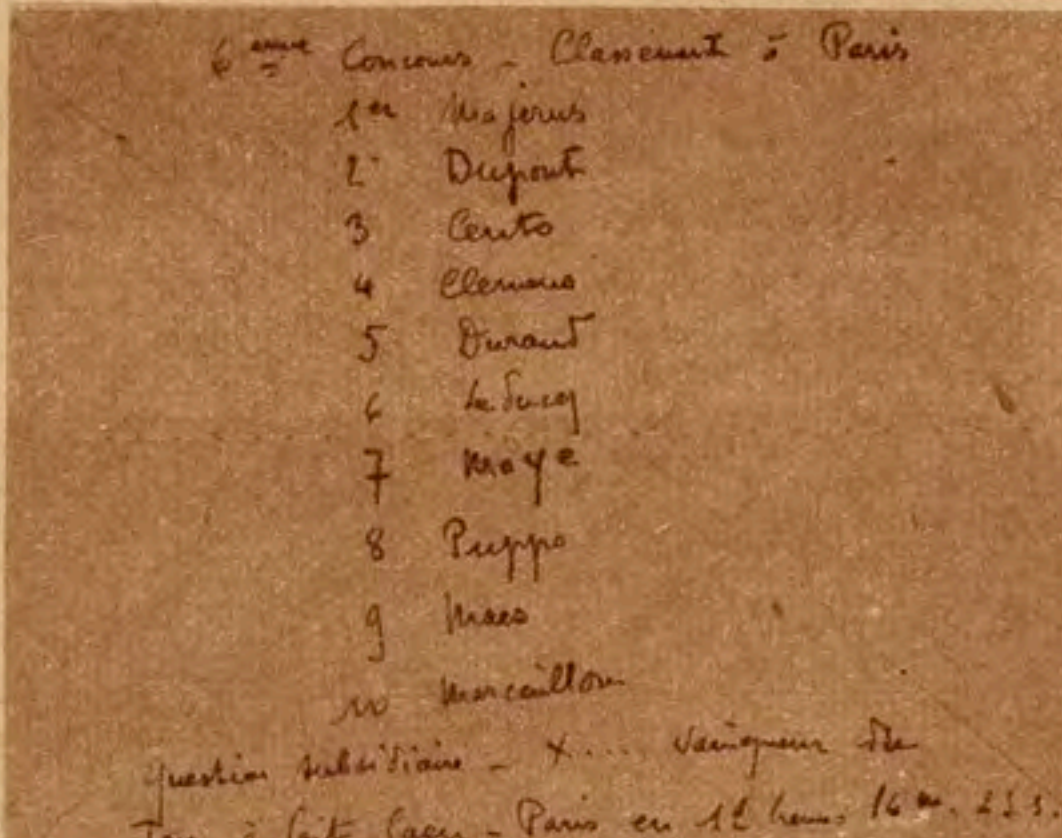 6ème Concours - Classement à Paris
1er Majerus
2 Dupont
3 Cento
4 Clemens
5 Durand
6 Leducq
7 Moye
8 Puppo
9 Maes
10 Marcaillou
question subsidiaire - X.... vainqueur du
Tour à Caen - Paris en 12 heures 16 m.